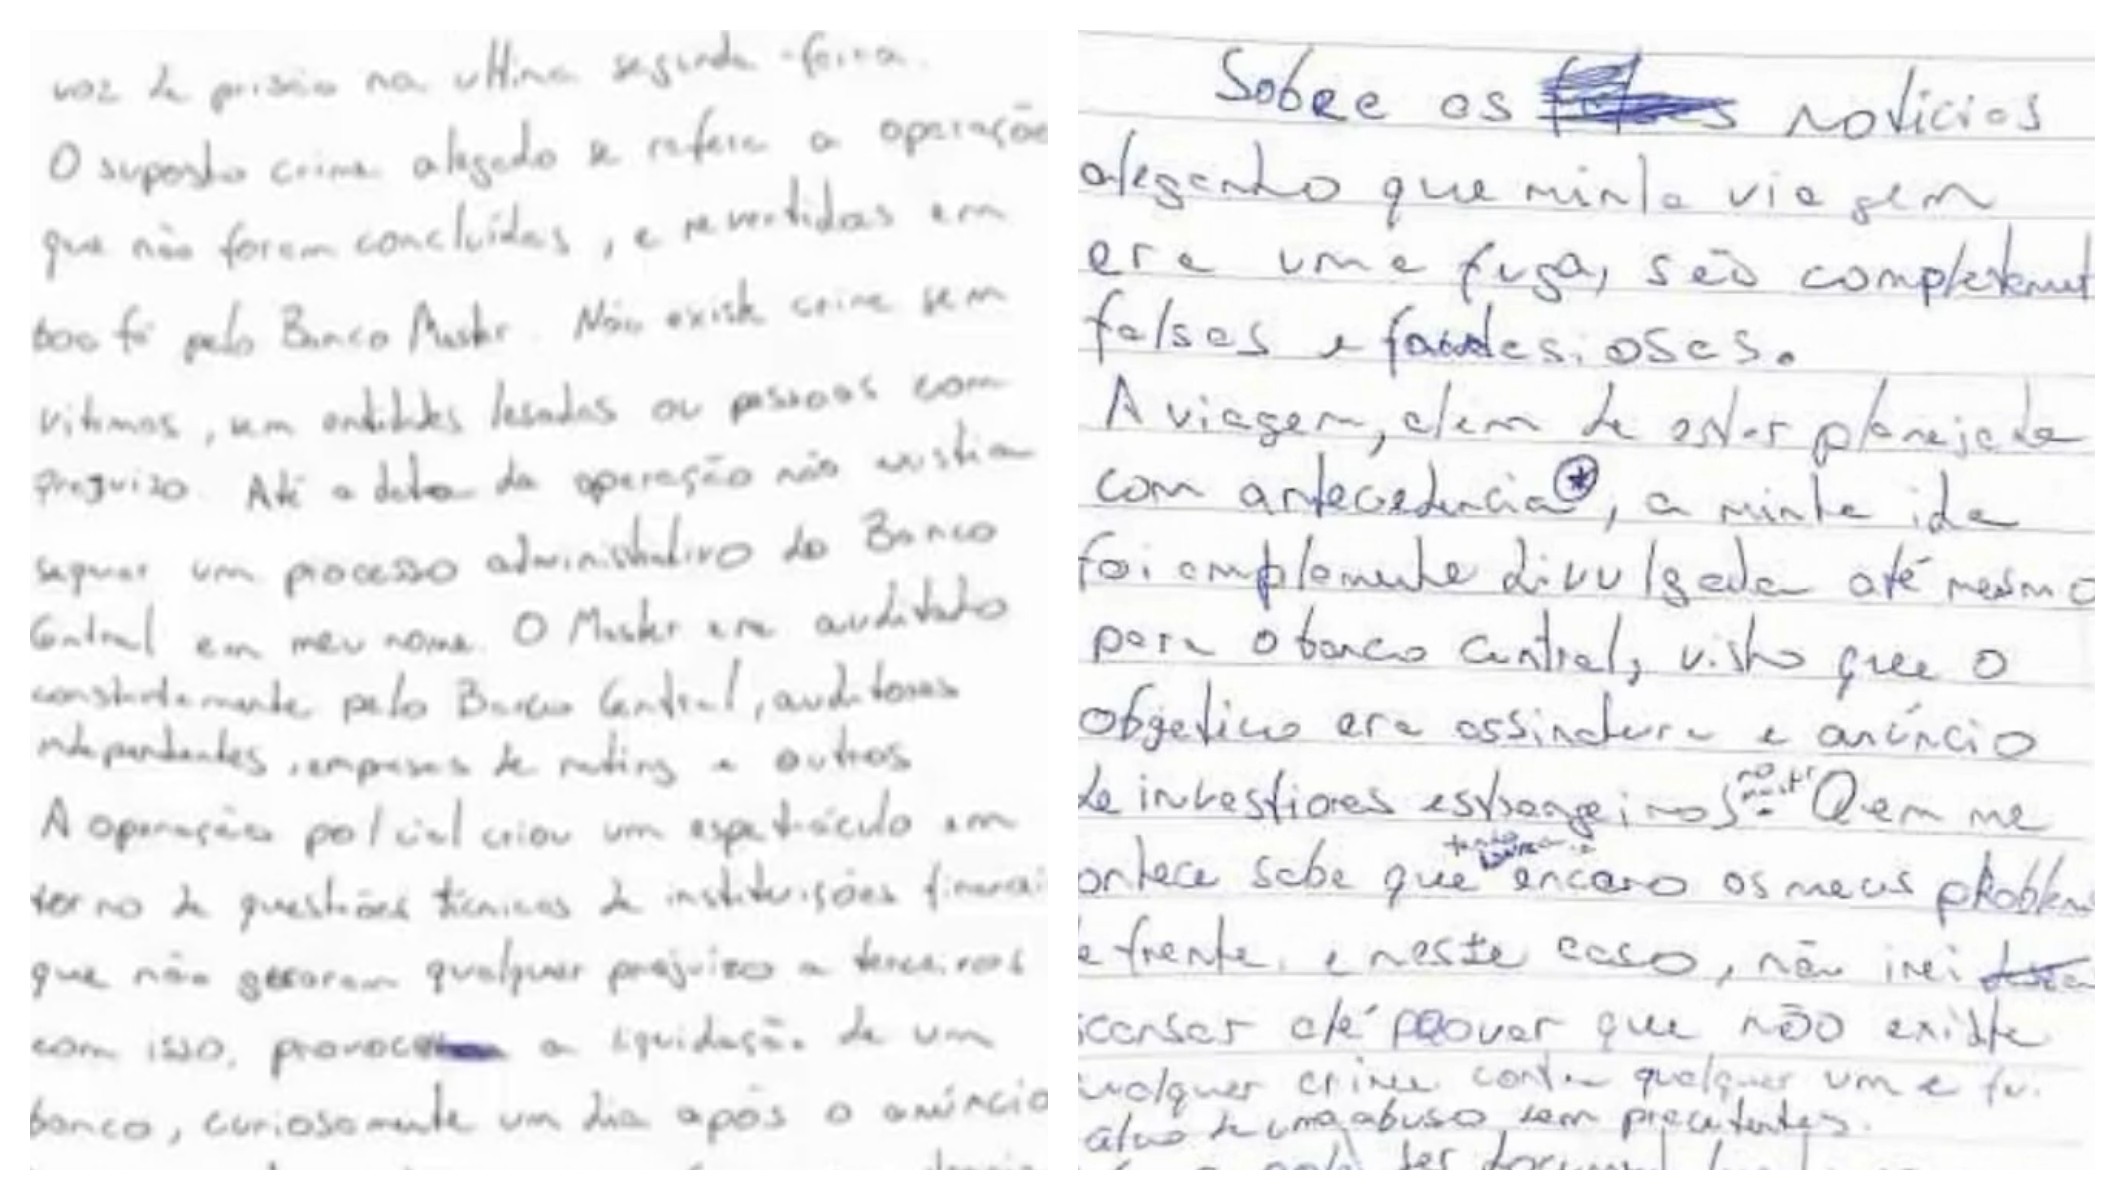 voz de prisão na ultima segunda-feira.
O suposto crime alegado se refere a operaçõe
que não foram concluídas, e revertidas em
boa fé pelo Banco Master. Não existe crime sem
vitimas, sem entidades lesadas ou pessoas com
prejuizo. Até a data da operação não existia
sequer um processo administrativo do Banco
Central em meu nome. O Master era auditado
constantemente pelo Banco Central, auditorias
independentes, empresas de rating e outros
A operação policial criou um espetáculo em
torno de questões técnicas de instituições financei
que não geraram qualquer prejuizo a terceiros
com isso, provoc a liquidação de um
banco, curiosamente um dia após o anúncio
Sobre as noticias
alegando que minha viagem
era uma fuga, são completament
falsas e
A viagem, alem de estar planejada
com antecedencia*, a minha ida
foi amplamente divulgada até mesmo
para o banco Central, visto que o
objetivo era assinatura e anúncio
de investiores estrangeiros no Master Quem me
onhece sabe que encaro os meus problem
e frente, e neste caso, não irei
scansar até provar que não existe
ualquer crime contra qualquer um e fui
alvo de uma abuso sem precedentes.